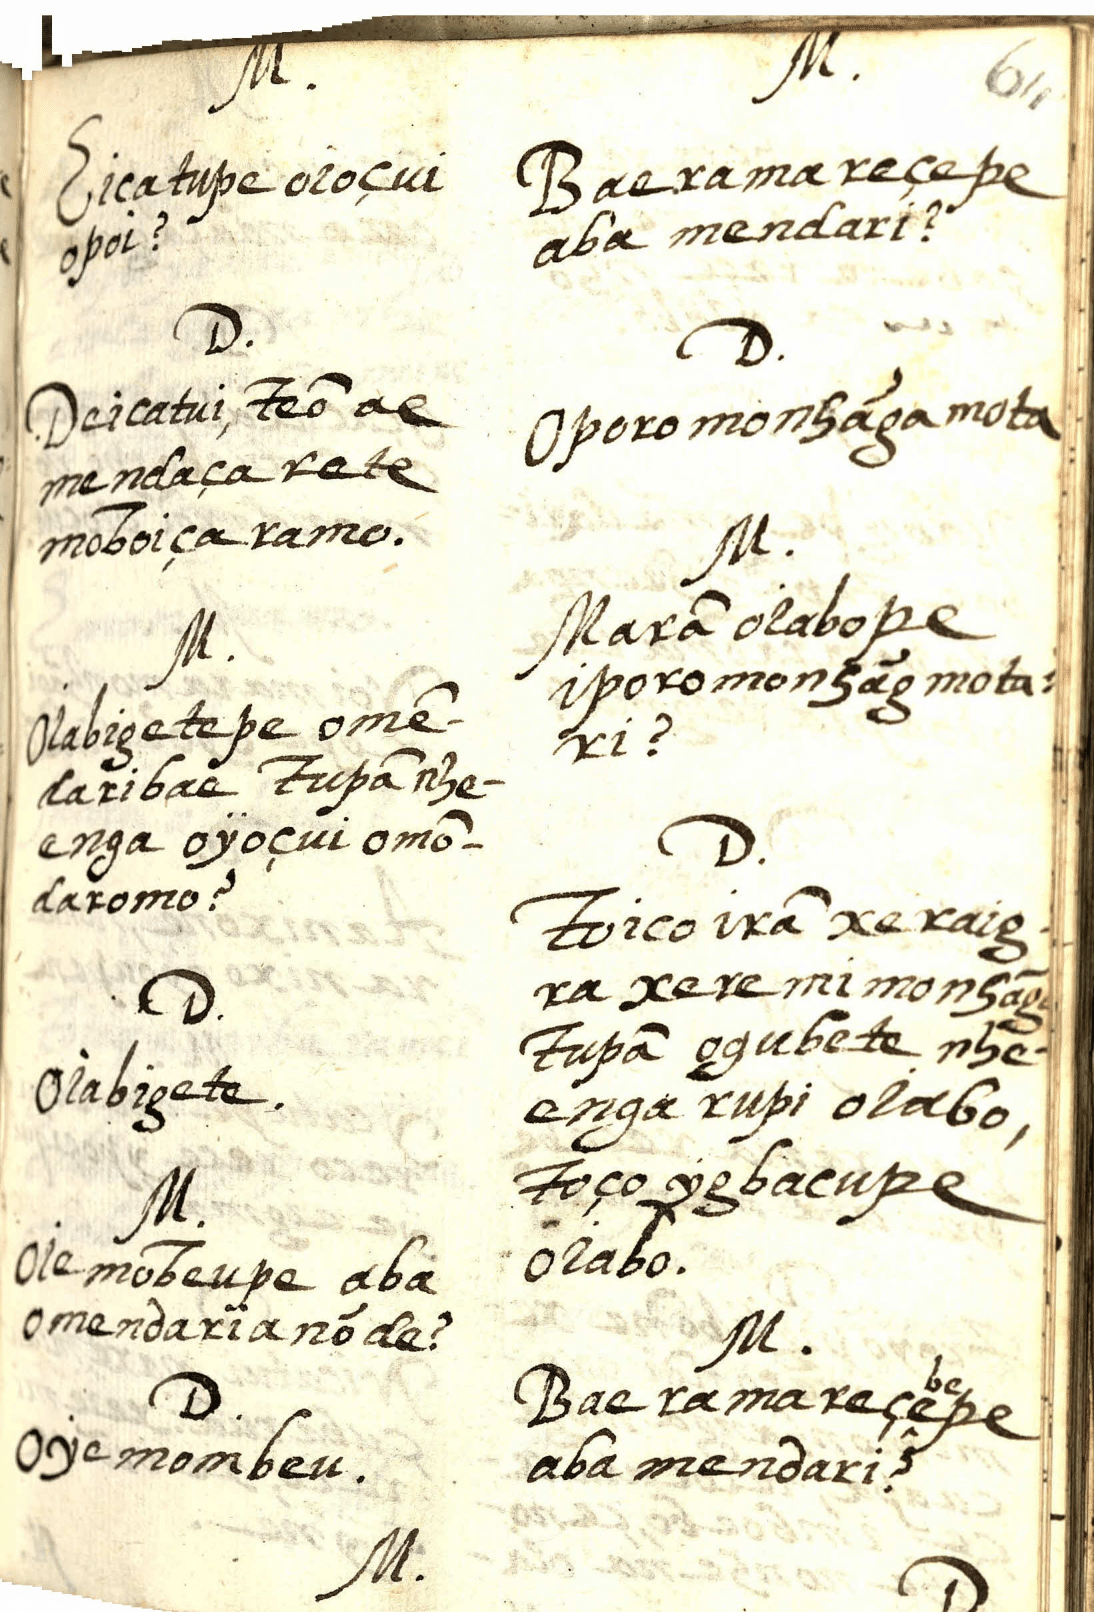 M.
Eicatupe oioçui
opoi?
D.
Deicatui, teõ ae
mendaça rete
mõboiça ramo.
M.
Oiabigetepe omẽ-
daribae Tupã nhe-
enga oÿoçui omõ-
daromo?
D.
Oiabigete.
M.
Oie mõbeupe aba
omendarïa nõde?
D.
Oye mombeu.
M.
M.
Bae rama reçepe
aba mendari?
D.
Oporo monhãga mota
M.
Marã oiabope
iporomonhãg mota
ri?
D.
Toico irã xe raig
ra xere mi monhãg
Tupã ogubete nhe-
enga rupi oiabo,
toço ÿgbacupe
oiabo.
M.
Bae rama reçebepe
aba mendari?
D